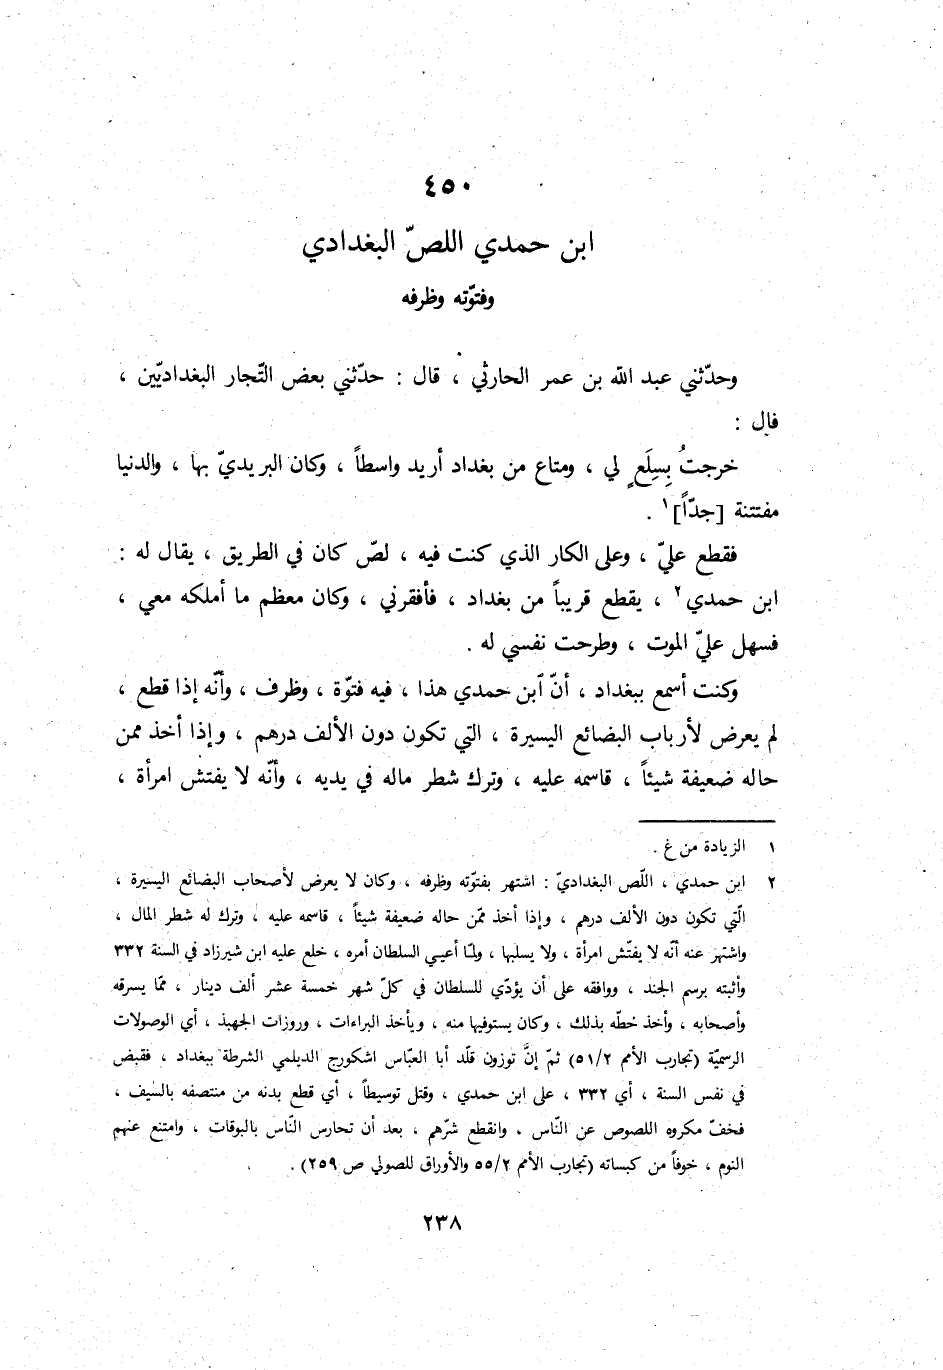 ٤٥٠
ابن حمدي اللصّ البغدادي
وفتوّته وظرفه
وحدّثني عبد الله بن عمر الحارثي ، قال : حدّثني بعض التّجار البغداديّين ،
قال :
خرجتُ بِسِلَعٍ لي ، ومتاع من بغداد أريد واسطاً ، وكان البريديّ بها ، والدنيا
مفتتنة [جدّاً]١ .
فقطع عليّ ، وعلى الكار الذي كنت فيه ، لصّ كان في الطريق ، يقال له :
ابن حمدي٢ ، يقطع قريباً من بغداد ، فأفقرني ، وكان معظم ما أملكه معي ،
فسهل عليّ الموت ، وطرحت نفسي له .
وكنت أسمع ببغداد ، أنّ ٱبن حمدي هذا ، فيه فتوّة ، وظرف ، وأنّه إذا قطع ،
لم يعرض لأرباب البضائع اليسيرة ، التي تكون دون الألف درهم ، وإذا أخذ ممن
حاله ضعيفة شيئاً ، قاسمه عليه ، وترك شطر ماله في يديه ، وأنّه لا يفتش امرأة ،
١ الزيادة من غ .
٢ ابن حمدي ، اللّص البغداديّ : اشتهر بفتوّته وظرفه ، وكان لا يعرض لأصحاب البضائع اليسيرة ،
الّتي تكون دون الألف درهم ، وإذا أخذ ممّن حاله ضعيفة شيئاً ، قاسمه عليه ، وترك له شطر المال ،
واشتهر عنه أنّه لا يفتّش امرأة ، ولا يسلبها ، ولمّا أعيى السلطان أمره ، خلع عليه ابن شيرزاد في السنة ٣٣٢
وأثبته برسم الجند ، ووافقه على أن يؤدّي للسلطان في كلّ شهر خمسة عشر ألف دينار ، ممّا يسرقه
وأصحابه ، وأخذ خطّه بذلك ، وكان يستوفيها منه ، ويأخذ البراءات ، وروزات الجهبذ ، أي الوصولات
الرسميّة (تجارب الأمم ٥١/٢) ثمّ إنَّ توزون قلّد أبا العبّاس اشكورج الديلمي الشرطة ببغداد ، فقبض
في نفس السنة ، أي ٣٣٢ ، على ابن حمدي ، وقتل توسيطاً ، أي قطع بدنه من منتصفه بالسيف ،
فخفّ مكروه اللصوص عن النّاس ، وانقطع شرّهم ، بعد أن تحارس النّاس بالبوقات ، وامتنع عنهم
النوم ، خوفاً من كبساته (تجارب الأمم ٥٥/٢ والأوراق للصولي ص ٢٥٩) .
٢٣٨